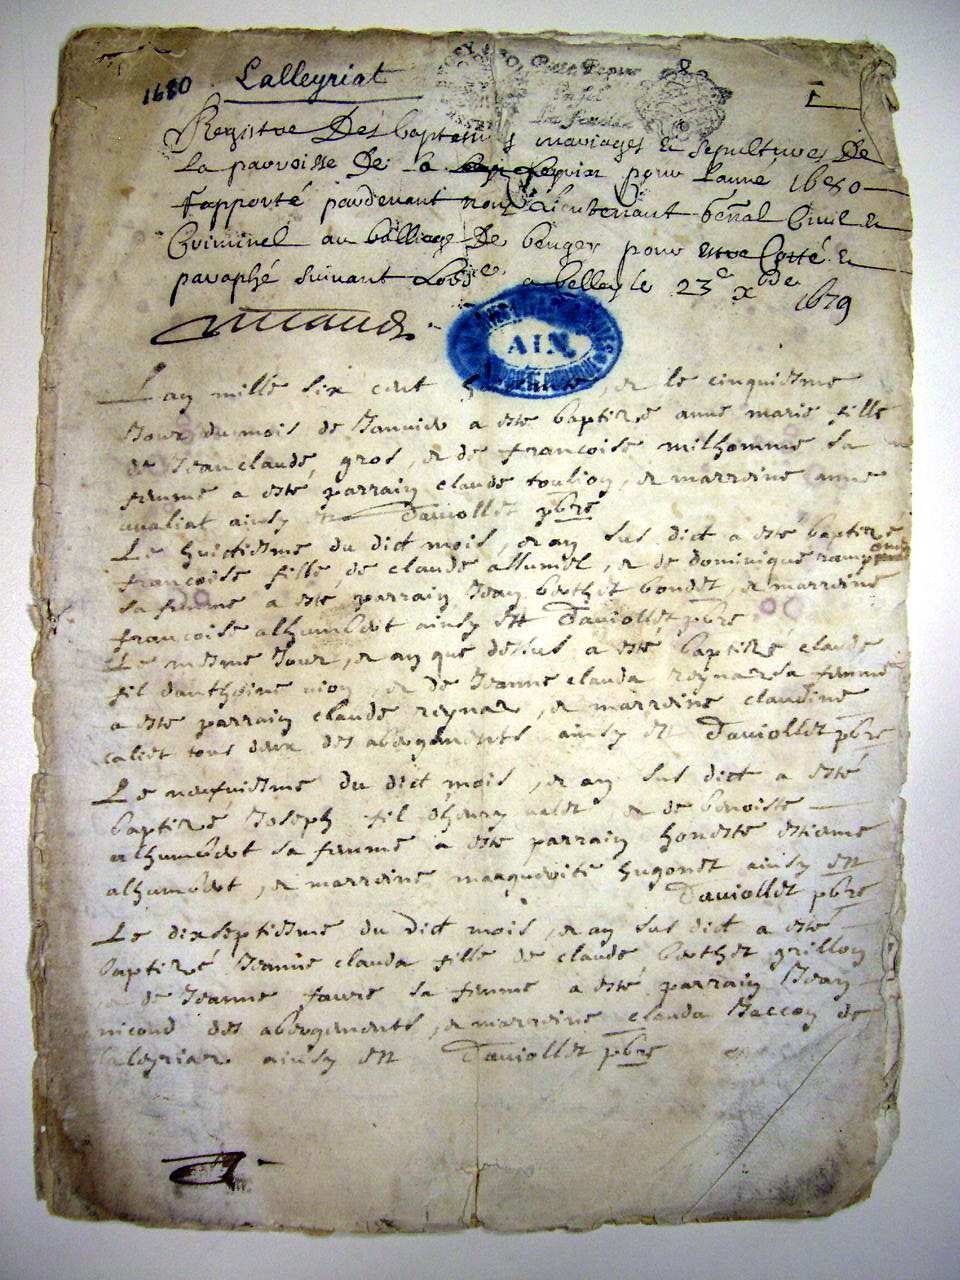 1680 Lalleyriat
I
Registre Des baptesmes mariages et sepultures De
La parroisse De la pour Lanne 1680
rapporté pardevant nous Lieutenant general Civil et
Criminel au balliage De beugey pour estre Cotté et
paraphé suivant Lord^ce a belley le 23^e x^bre 1679
AIN
Lan mille six cent , et le cinquiesme
Jour du mois de Janvier a este baptizé anne marie fille
de Jeanclaude gros, et de francoise milhomme sa
femme a esté parrain claude toulion, et marreine anne
ainsy est Dauiollet pbre
Le huictiesme du dict mois, et an sus dict a este baptizé
francoise fille de claude alluniel, et de dominique
sa femme a este parrain Jean berthet bondet, et marreine
francoise alhumbert ainsy est Dauiollet pbre
Le mesme Jour, et an que dessus a esté baptizé claude
fil danthoine nion, et de Jeanne clauda reynar sa femme
a este parrain claude reynar, et marreine claudine
caliet tous deux des abergements ainsy est Dauiollet pbre
Le neufuiesme du dict mois, et an sus dict a esté
baptizé Joseph fil dhenry et de benoiste
alhumbert sa femme a este parrain honeste estienne
alhumbert, et marreine marguerite hugonet ainsy est
Dauiollet pbre
Le dixseptiesme du dict mois, et an sus dict a esté
baptizé Jeanne clauda fille de claude berthet grillon
et de Jeanne faure sa femme a esté parrain Jean
nicoud des abergements, et marreine clauda Jaccon de
laleyriar ainsy est Dauiollet pbre